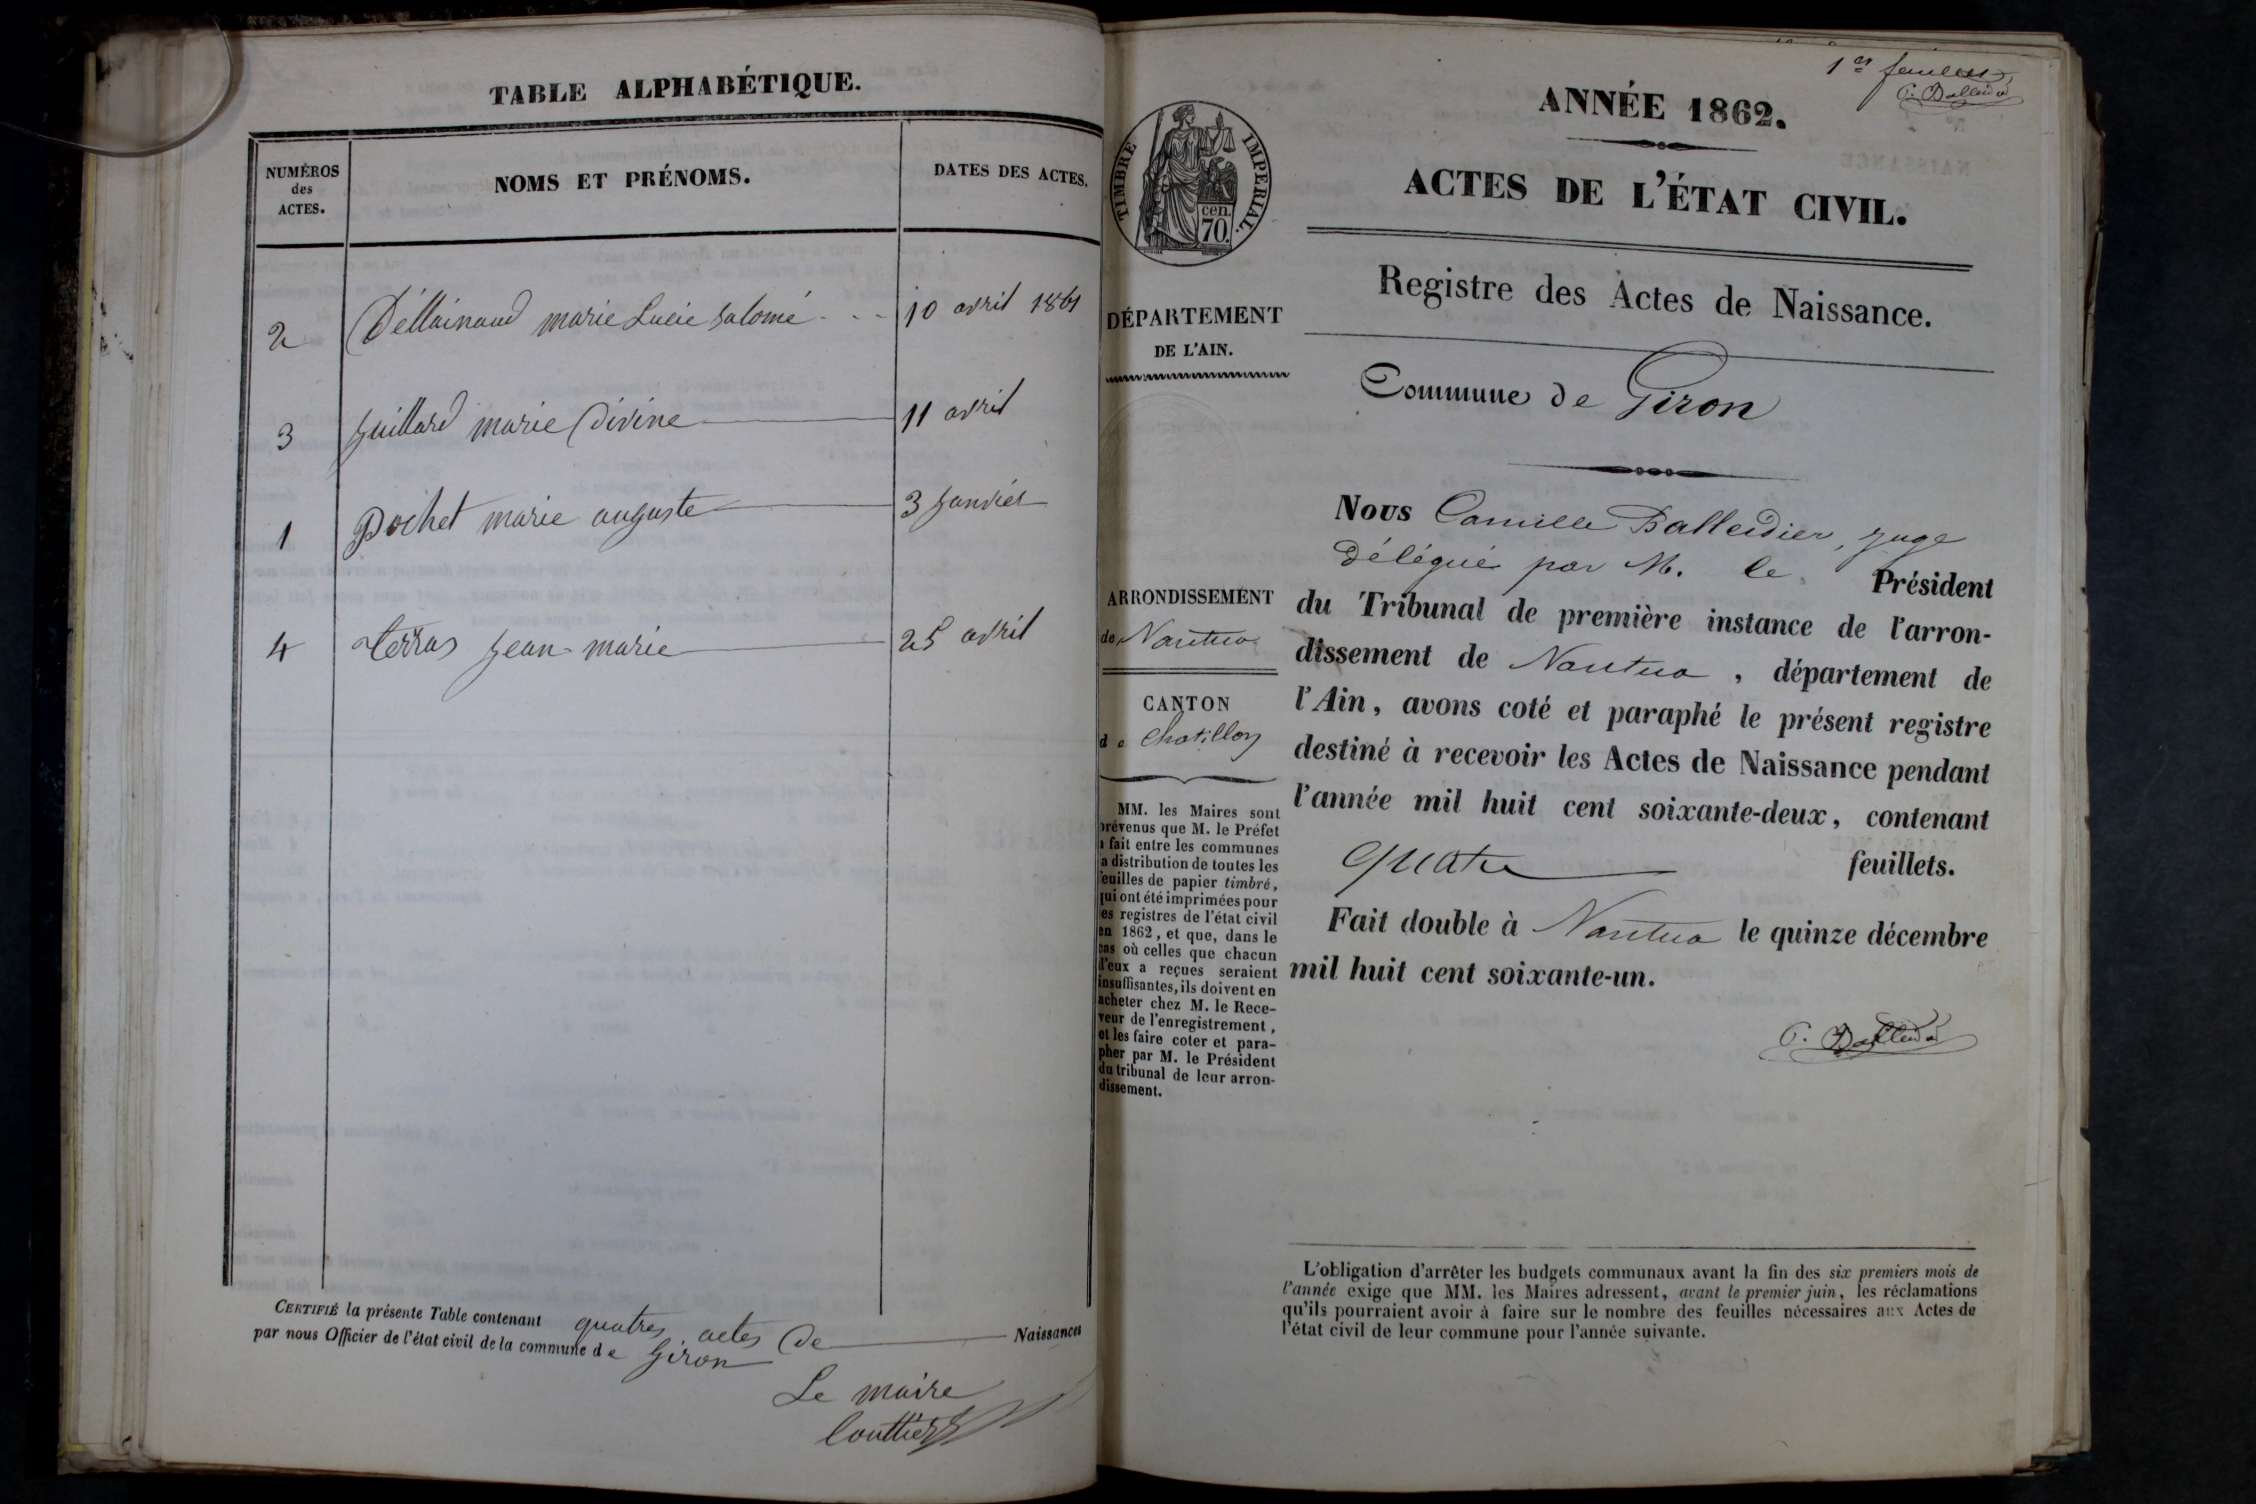 TABLE ALPHABÉTIQUE.
NUMÉROS
des
ACTES.
NOMS ET PRÉNOMS.
DATES DES ACTES.
2 marie Lucie Salomé 10 avril 1861
3 Juillard marie Divine 11 avril
1 Pochet marie auguste 3 Janvier
4 terras Jean-marie 25 avril
CERTIFIÉ la présente Table contenant quatres actes de Naissances
par nous Officier de l'état civil de la commune de Giron
Le maire
1er feuillet
C. Balleidier
ANNÉE 1862.
ACTES DE L'ÉTAT CIVIL.
Registre des Actes de Naissance.
TIMBRE IMPERIAL.
cen.
70.
DÉPARTEMENT
DE L'AIN.
Commune de Giron
ARRONDISSEMENT
de Nantua
CANTON
de Chatillon
MM. les Maires sont
prévenus que M. le Préfet
a fait entre les communes
la distribution de toutes les
feuilles de papier timbré,
qui ont été imprimées pour
les registres de l'état civil
en 1862, et que, dans le
cas où celles que chacun
d'eux a reçues seraient
insuffisantes, ils doivent en
acheter chez M. le Rece-
veur de l'enregistrement,
et les faire coter et para-
pher par M. le Président
du tribunal de leur arron-
dissement.
Nous Camille Balleidier, juge
délégué par M. le Président
du Tribunal de première instance de l'arron-
dissement de Nantua, département de
l'Ain, avons coté et paraphé le présent registre
destiné à recevoir les Actes de Naissance pendant
l'année mil huit cent soixante-deux, contenant
quatre feuillets.
Fait double à Nantua le quinze décembre
mil huit cent soixante-un.
C. Balleidier
L'obligation d'arrêter les budgets communaux avant la fin des six premiers mois de
l'année exige que MM. les Maires adressent, avant le premier juin, les réclamations
qu'ils pourraient avoir à faire sur le nombre des feuilles nécessaires aux Actes de
l'état civil de leur commune pour l'année suivante.